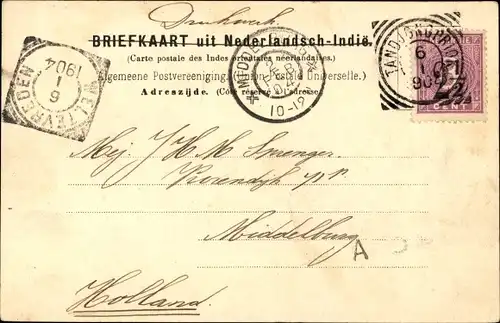 Drukwerk
BRIEFKAART uit Nederlandsch-Indië.
(Carte postale des Indes orientales néerlandaises.)
Algemeene Postvereeniging. (Union Postale Universelle.)
Adreszijde. (Côté réservé à l'adresse.)
WELTEVREDEN
6
1
1904
10-12
TANDJONGPRIOK
6
2½
CENT
Mej. J H M Sprenger.
Middelburg
A
Holland.